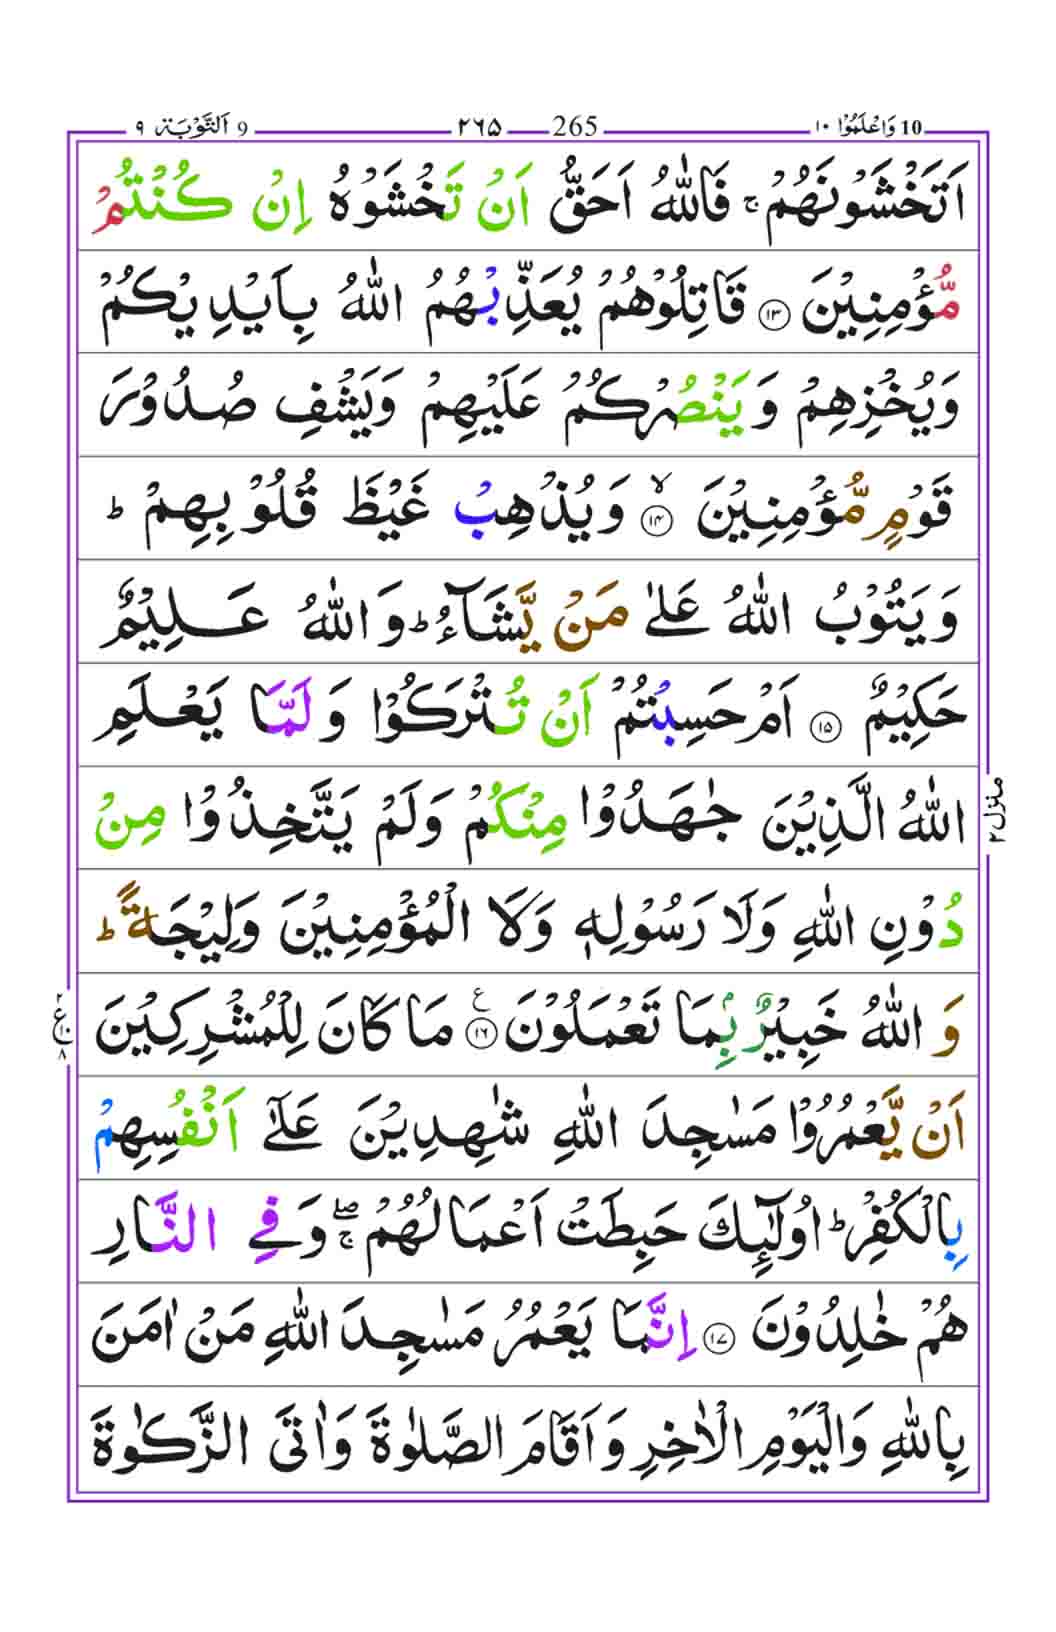 10 وَاعْلَمُوْۤا ١٠ 265 ٢٦٥ 9 اَلتَّوْبَة ٩
اَتَخْشَوْنَهُمْ ۚ فَاللّٰهُ اَحَقُّ اَنْ تَخْشَوْهُ اِنْ كُنْتُمْ
مُّؤْمِنِيْنَ ﴿١٣﴾ قَاتِلُوْهُمْ يُعَذِّبْهُمُ اللّٰهُ بِاَيْدِيْكُمْ
وَيُخْزِهِمْ وَيَنْصُرْكُمْ عَلَيْهِمْ وَيَشْفِ صُدُوْرَ
قَوْمٍ مُّؤْمِنِيْنَ ۙ﴿١٤﴾ وَيُذْهِبْ غَيْظَ قُلُوْبِهِمْ ؕ
وَيَتُوْبُ اللّٰهُ عَلٰى مَنْ يَّشَآءُ ؕ وَاللّٰهُ عَلِيْمٌ
حَكِيْمٌ ﴿١٥﴾ اَمْ حَسِبْتُمْ اَنْ تُتْرَكُوْا وَلَمَّا يَعْلَمِ
اللّٰهُ الَّذِيْنَ جٰهَدُوْا مِنْكُمْ وَلَمْ يَتَّخِذُوْا مِنْ
منزل٢
دُوْنِ اللّٰهِ وَلَا رَسُوْلِهٖ وَلَا الْمُؤْمِنِيْنَ وَلِيْجَةً ؕ
وَاللّٰهُ خَبِيْرٌۢ بِمَا تَعْمَلُوْنَ ﴿١٦﴾ ع مَا كَانَ لِلْمُشْرِكِيْنَ
٢ ع ١٠ ٨
اَنْ يَّعْمُرُوْا مَسٰجِدَ اللّٰهِ شٰهِدِيْنَ عَلٰٓى اَنْفُسِهِمْ
بِالْكُفْرِ ؕ اُولٰٓئِكَ حَبِطَتْ اَعْمَالُهُمْ ۖۚ وَفِي النَّارِ
هُمْ خٰلِدُوْنَ ﴿١٧﴾ اِنَّمَا يَعْمُرُ مَسٰجِدَ اللّٰهِ مَنْ اٰمَنَ
بِاللّٰهِ وَالْيَوْمِ الْاٰخِرِ وَاَقَامَ الصَّلٰوةَ وَاٰتَى الزَّكٰوةَ